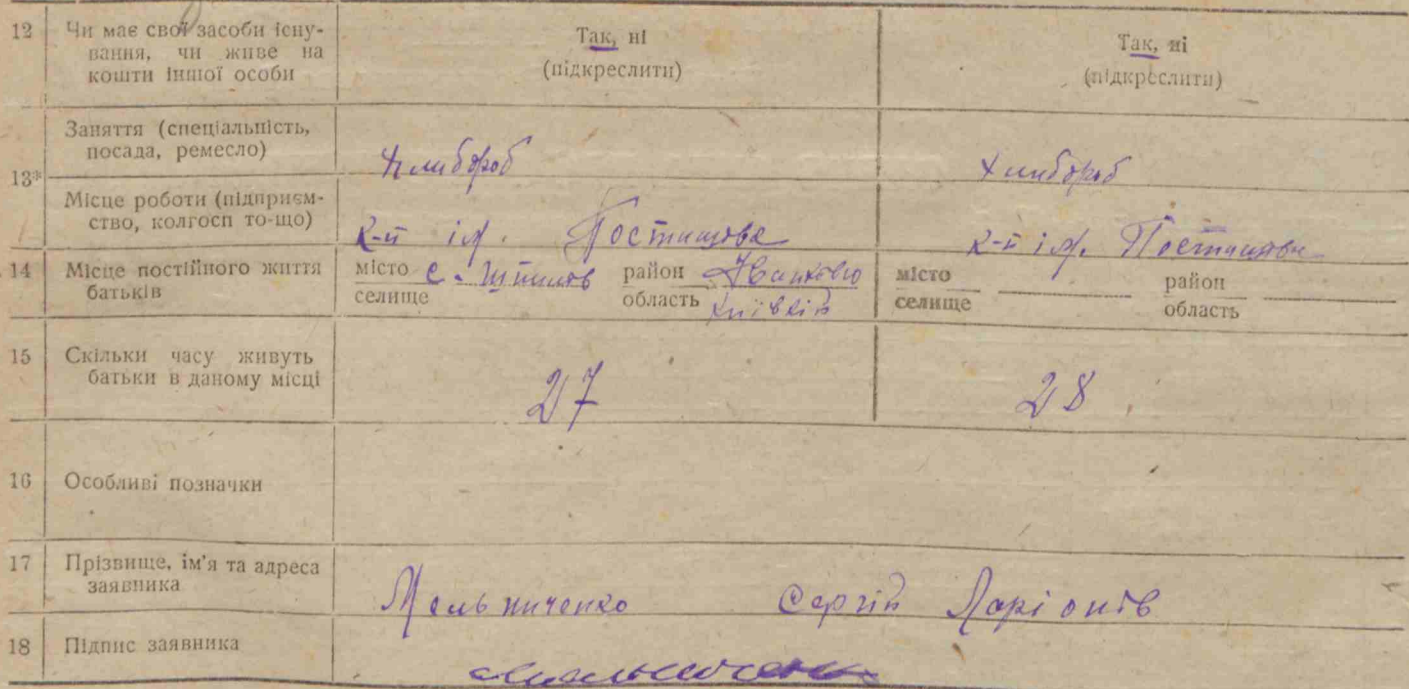 12 Чи має свої засоби існу-
вання, чи живе на
кошти іншої особи
Так, ні
(підкреслити)
Так, ні
(підкреслити)
13*
Заняття (спеціальність,
посада, ремесло)
Хлибороб
Хлибороб
Місце роботи (підприєм-
ство, колгосп то-що)
к-п ім. Постишева
к-п ім. Постишева
14 Місце постійного життя
батьків
місто с.
селище
район
область Київскій
місто
селище
район
область
15 Скільки часу живуть
батьки в даному місці
27
28
16 Особливі позначки
17 Прізвище, ім'я та адреса
заявника
Мельниченко Сергій Ларіонів
18 Підпис заявника